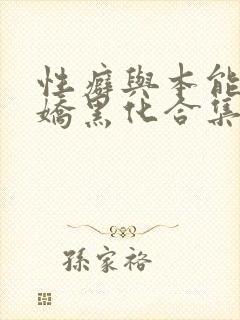 性癖與本能
嬌黑化合集
孫家裕